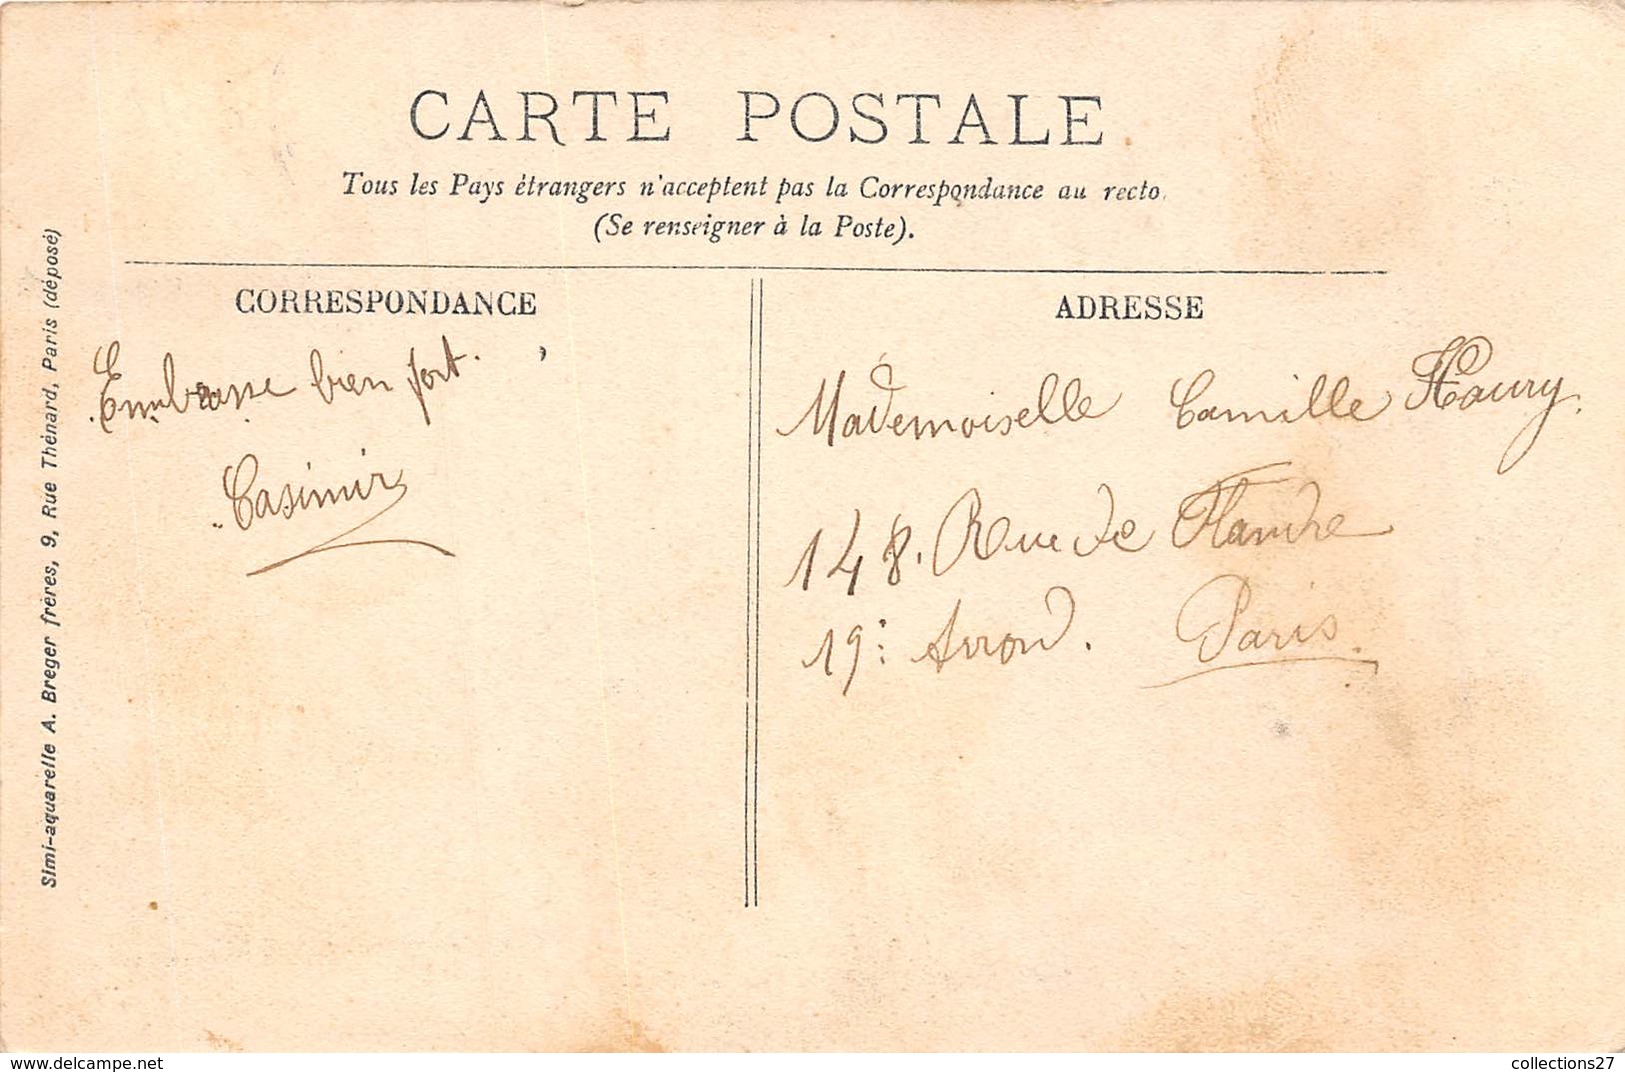 CARTE POSTALE
Tous les Pays étrangers n'acceptent pas la Correspondance au recto.
(Se renseigner à la Poste).
CORRESPONDANCE
Embrasse bien fort.
Casimir
ADRESSE
Mademoiselle Camille Haury.
148. Rue de Flandre
19e Arrond. Paris.
Simi-aquarelle A. Breger frères, 9, Rue Thénard, Paris (déposé)
https://www.delcampe.net
collections27